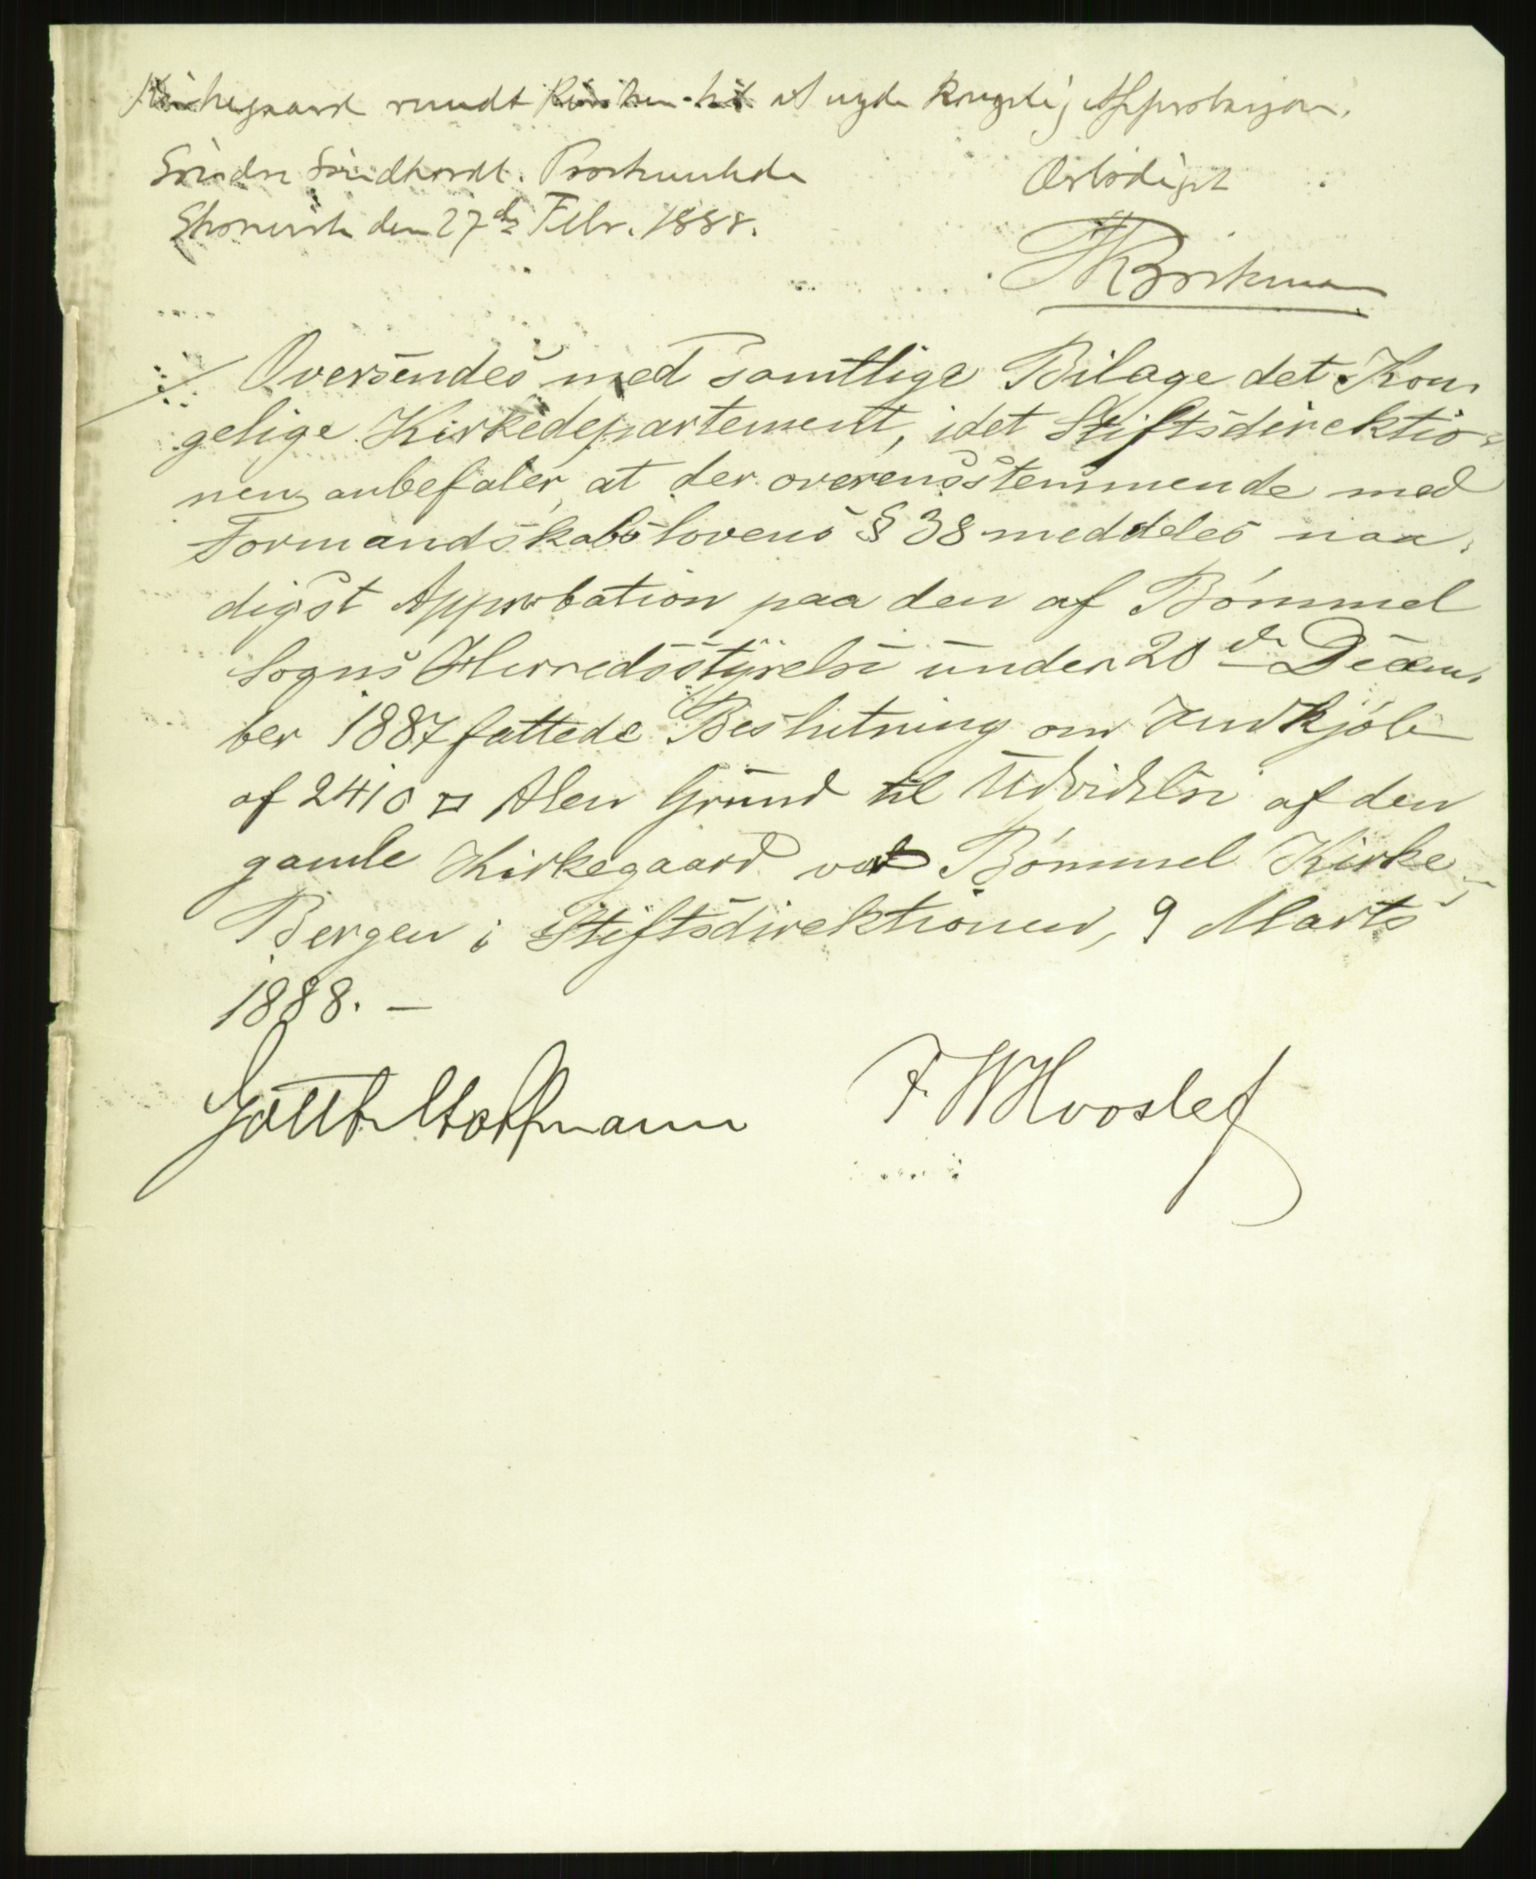 Kirkegaard rundt Kirken til at nyde kongelig Approbasjon.
Søndre Søndhordl. Prosteembede Ærbødigst
den 27de Febr. 1888.
Oversendes med samtlige Bilage det Kon,
gelige Kirkedepartement, idet Stiftsdirektio,
nen anbefaler, at der overensstemmende med
Formandskabslovens § 38 meddeles naa,
digst Approbation paa den af Bømmel
Sogns Herredsstyrelse under 20de Decem,
ber 1887 fattede Beslutning om Indkjøb
af 2410 □ Alen Grund til Udvidelse af den
gamle Kirkegaard ved Bømmel Kirke
Bergen i Stiftsdirektionen, 9 Marts
1888. —
F. W Hvoslef